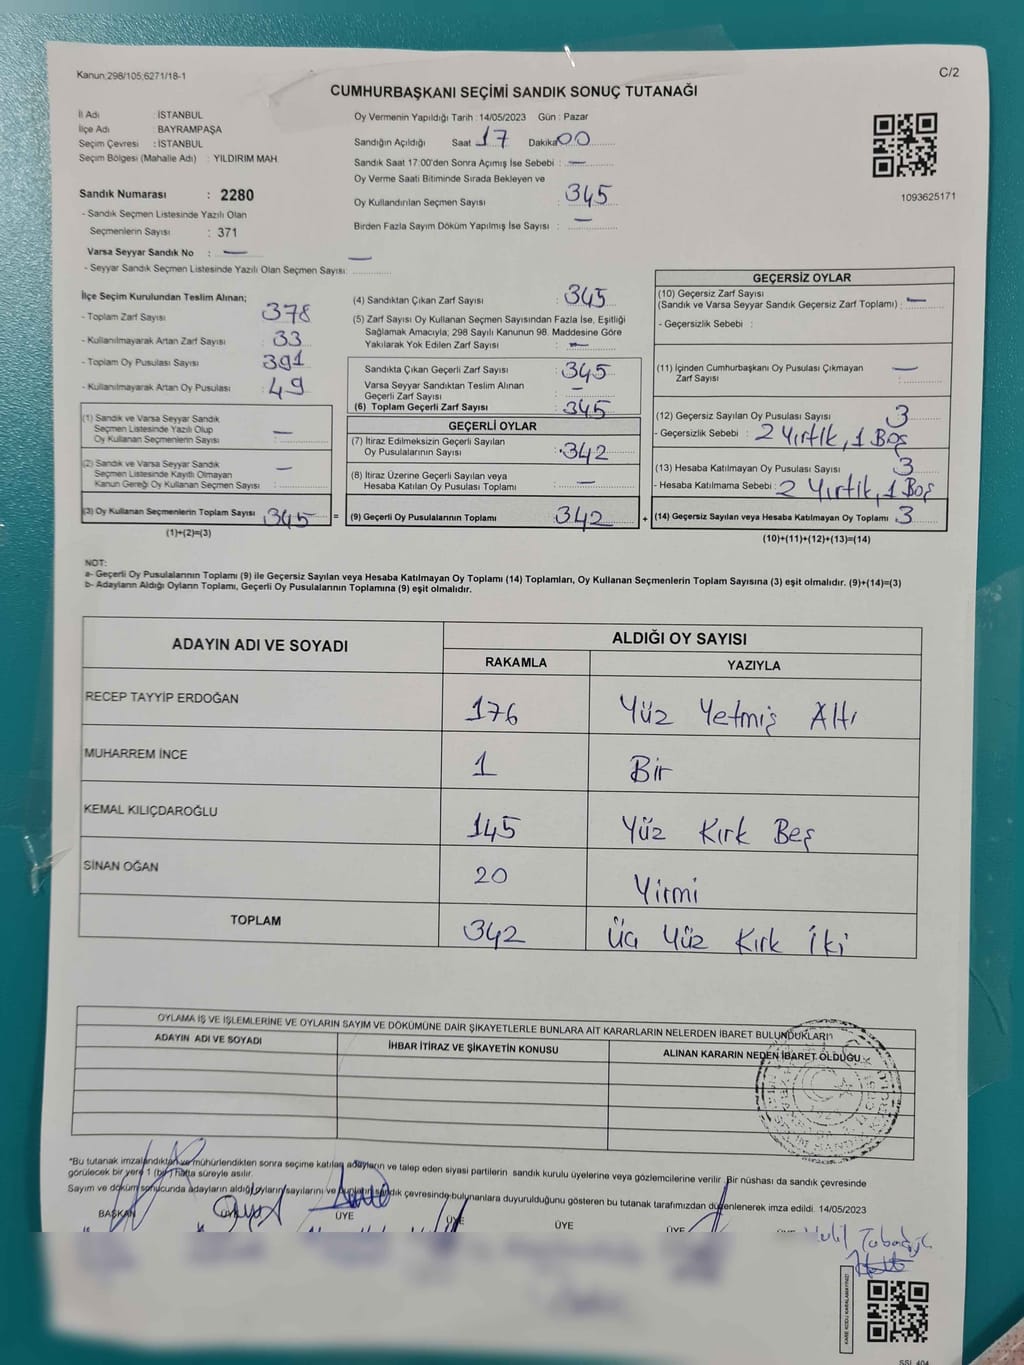 Kanun;298/105;6271/18-1
C/2
CUMHURBAŞKANI SEÇİMİ SANDIK SONUÇ TUTANAĞI
İl Adı : İSTANBUL
İlçe Adı : BAYRAMPAŞA
Seçim Çevresi : İSTANBUL
Seçim Bölgesi (Mahalle Adı) : YILDIRIM MAH.
Sandık Numarası : 2280
- Sandık Seçmen Listesinde Yazılı Olan
Seçmenlerin Sayısı : 371
Varsa Seyyar Sandık No : —
- Seyyar Sandık Seçmen Listesinde Yazılı Olan Seçmen Sayısı: —
Oy Vermenin Yapıldığı Tarih : 14/05/2023 Gün : Pazar
Sandığın Açıldığı Saat 17 Dakika 00
Sandık Saat 17:00'den Sonra Açımış İse Sebebi : —
Oy Verme Saati Bitiminde Sırada Bekleyen ve
Oy Kullandırılan Seçmen Sayısı : 345
Birden Fazla Sayım Döküm Yapılmış İse Sayısı : —
1093625171
İlçe Seçim Kurulundan Teslim Alınan;
- Toplam Zarf Sayısı : 378
- Kullanılmayarak Artan Zarf Sayısı : 33
- Toplam Oy Pusulası Sayısı : 391
- Kullanılmayarak Artan Oy Pusulası : 49
(1) Sandık ve Varsa Seyyar Sandık
Seçmen Listesinde Yazılı Olup
Oy Kullanan Seçmenlerin Sayısı : —
(2) Sandık ve Varsa Seyyar Sandık
Seçmen Listesinde Kayıtlı Olmayan
Kanun Gereği Oy Kullanan Seçmen Sayısı : —
(3) Oy Kullanan Seçmenlerin Toplam Sayısı : 345 =
(1)+(2)=(3)
(4) Sandıktan Çıkan Zarf Sayısı : 345
(5) Zarf Sayısı Oy Kullanan Seçmen Sayısından Fazla İse, Eşitliği
Sağlamak Amacıyla; 298 Sayılı Kanunun 98. Maddesine Göre
Yakılarak Yok Edilen Zarf Sayısı : —
Sandıkta Çıkan Geçerli Zarf Sayısı : 345
Varsa Seyyar Sandıktan Teslim Alınan
Geçerli Zarf Sayısı : —
(6) Toplam Geçerli Zarf Sayısı : 345
GEÇERLİ OYLAR
(7) İtiraz Edilmeksizin Geçerli Sayılan
Oy Pusulalarının Sayısı : 342
(8) İtiraz Üzerine Geçerli Sayılan veya
Hesaba Katılan Oy Pusulası Toplamı : —
(9) Geçerli Oy Pusulalarının Toplamı : 342 +
GEÇERSİZ OYLAR
(10) Geçersiz Zarf Sayısı
(Sandık ve Varsa Seyyar Sandık Geçersiz Zarf Toplamı) : —
- Geçersizlik Sebebi :
(11) İçinden Cumhurbaşkanı Oy Pusulası Çıkmayan
Zarf Sayısı : —
(12) Geçersiz Sayılan Oy Pusulası Sayısı : 3
- Geçersizlik Sebebi : 2 Yırtık, 1 Boş
(13) Hesaba Katılmayan Oy Pusulası Sayısı : 3
- Hesaba Katılmama Sebebi : 2 Yırtık, 1 Boş
(14) Geçersiz Sayılan veya Hesaba Katılmayan Oy Toplamı : 3
(10)+(11)+(12)+(13)=(14)
NOT:
a- Geçerli Oy Pusulalarının Toplamı (9) ile Geçersiz Sayılan veya Hesaba Katılmayan Oy Toplamı (14) Toplamları, Oy Kullanan Seçmenlerin Toplam Sayısına (3) eşit olmalıdır. (9)+(14)=(3)
b- Adayların Aldığı Oyların Toplamı, Geçerli Oy Pusulalarının Toplamına (9) eşit olmalıdır.
ADAYIN ADI VE SOYADI ALDIĞI OY SAYISI
RAKAMLA YAZIYLA
RECEP TAYYİP ERDOĞAN 176 Yüz Yetmiş Altı
MUHARREM İNCE 1 Bir
KEMAL KILIÇDAROĞLU 145 Yüz Kırk Beş
SİNAN OĞAN 20 Yirmi
TOPLAM 342 Üç Yüz Kırk İki
OYLAMA İŞ VE İŞLEMLERİNE VE OYLARIN SAYIM VE DÖKÜMÜNE DAİR ŞİKAYETLERLE BUNLARA AİT KARARLARIN NELERDEN İBARET BULUNDUKLARI
ADAYIN ADI VE SOYADI İHBAR İTİRAZ VE ŞİKAYETİN KONUSU ALINAN KARARIN NEDEN İBARET OLDUĞU
*Bu tutanak imzalandıktan ve mühürlendikten sonra seçime katılan adayların ve talep eden siyasi partilerin sandık kurulu üyelerine veya gözlemcilerine verilir. Bir nüshası da sandık çevresinde
görülecek bir yere 1 (bir) hafta süreyle asılır.
Sayım ve döküm sonucunda adayların aldığı oyların sayılarını ve bunların sandık çevresinde bulunanlara duyurulduğunu gösteren bu tutanak tarafımızdan düzenlenerek imza edildi. 14/05/2023
BAŞKAN ÜYE ÜYE ÜYE ÜYE
KARE KODU KARALAMAYINIZ!